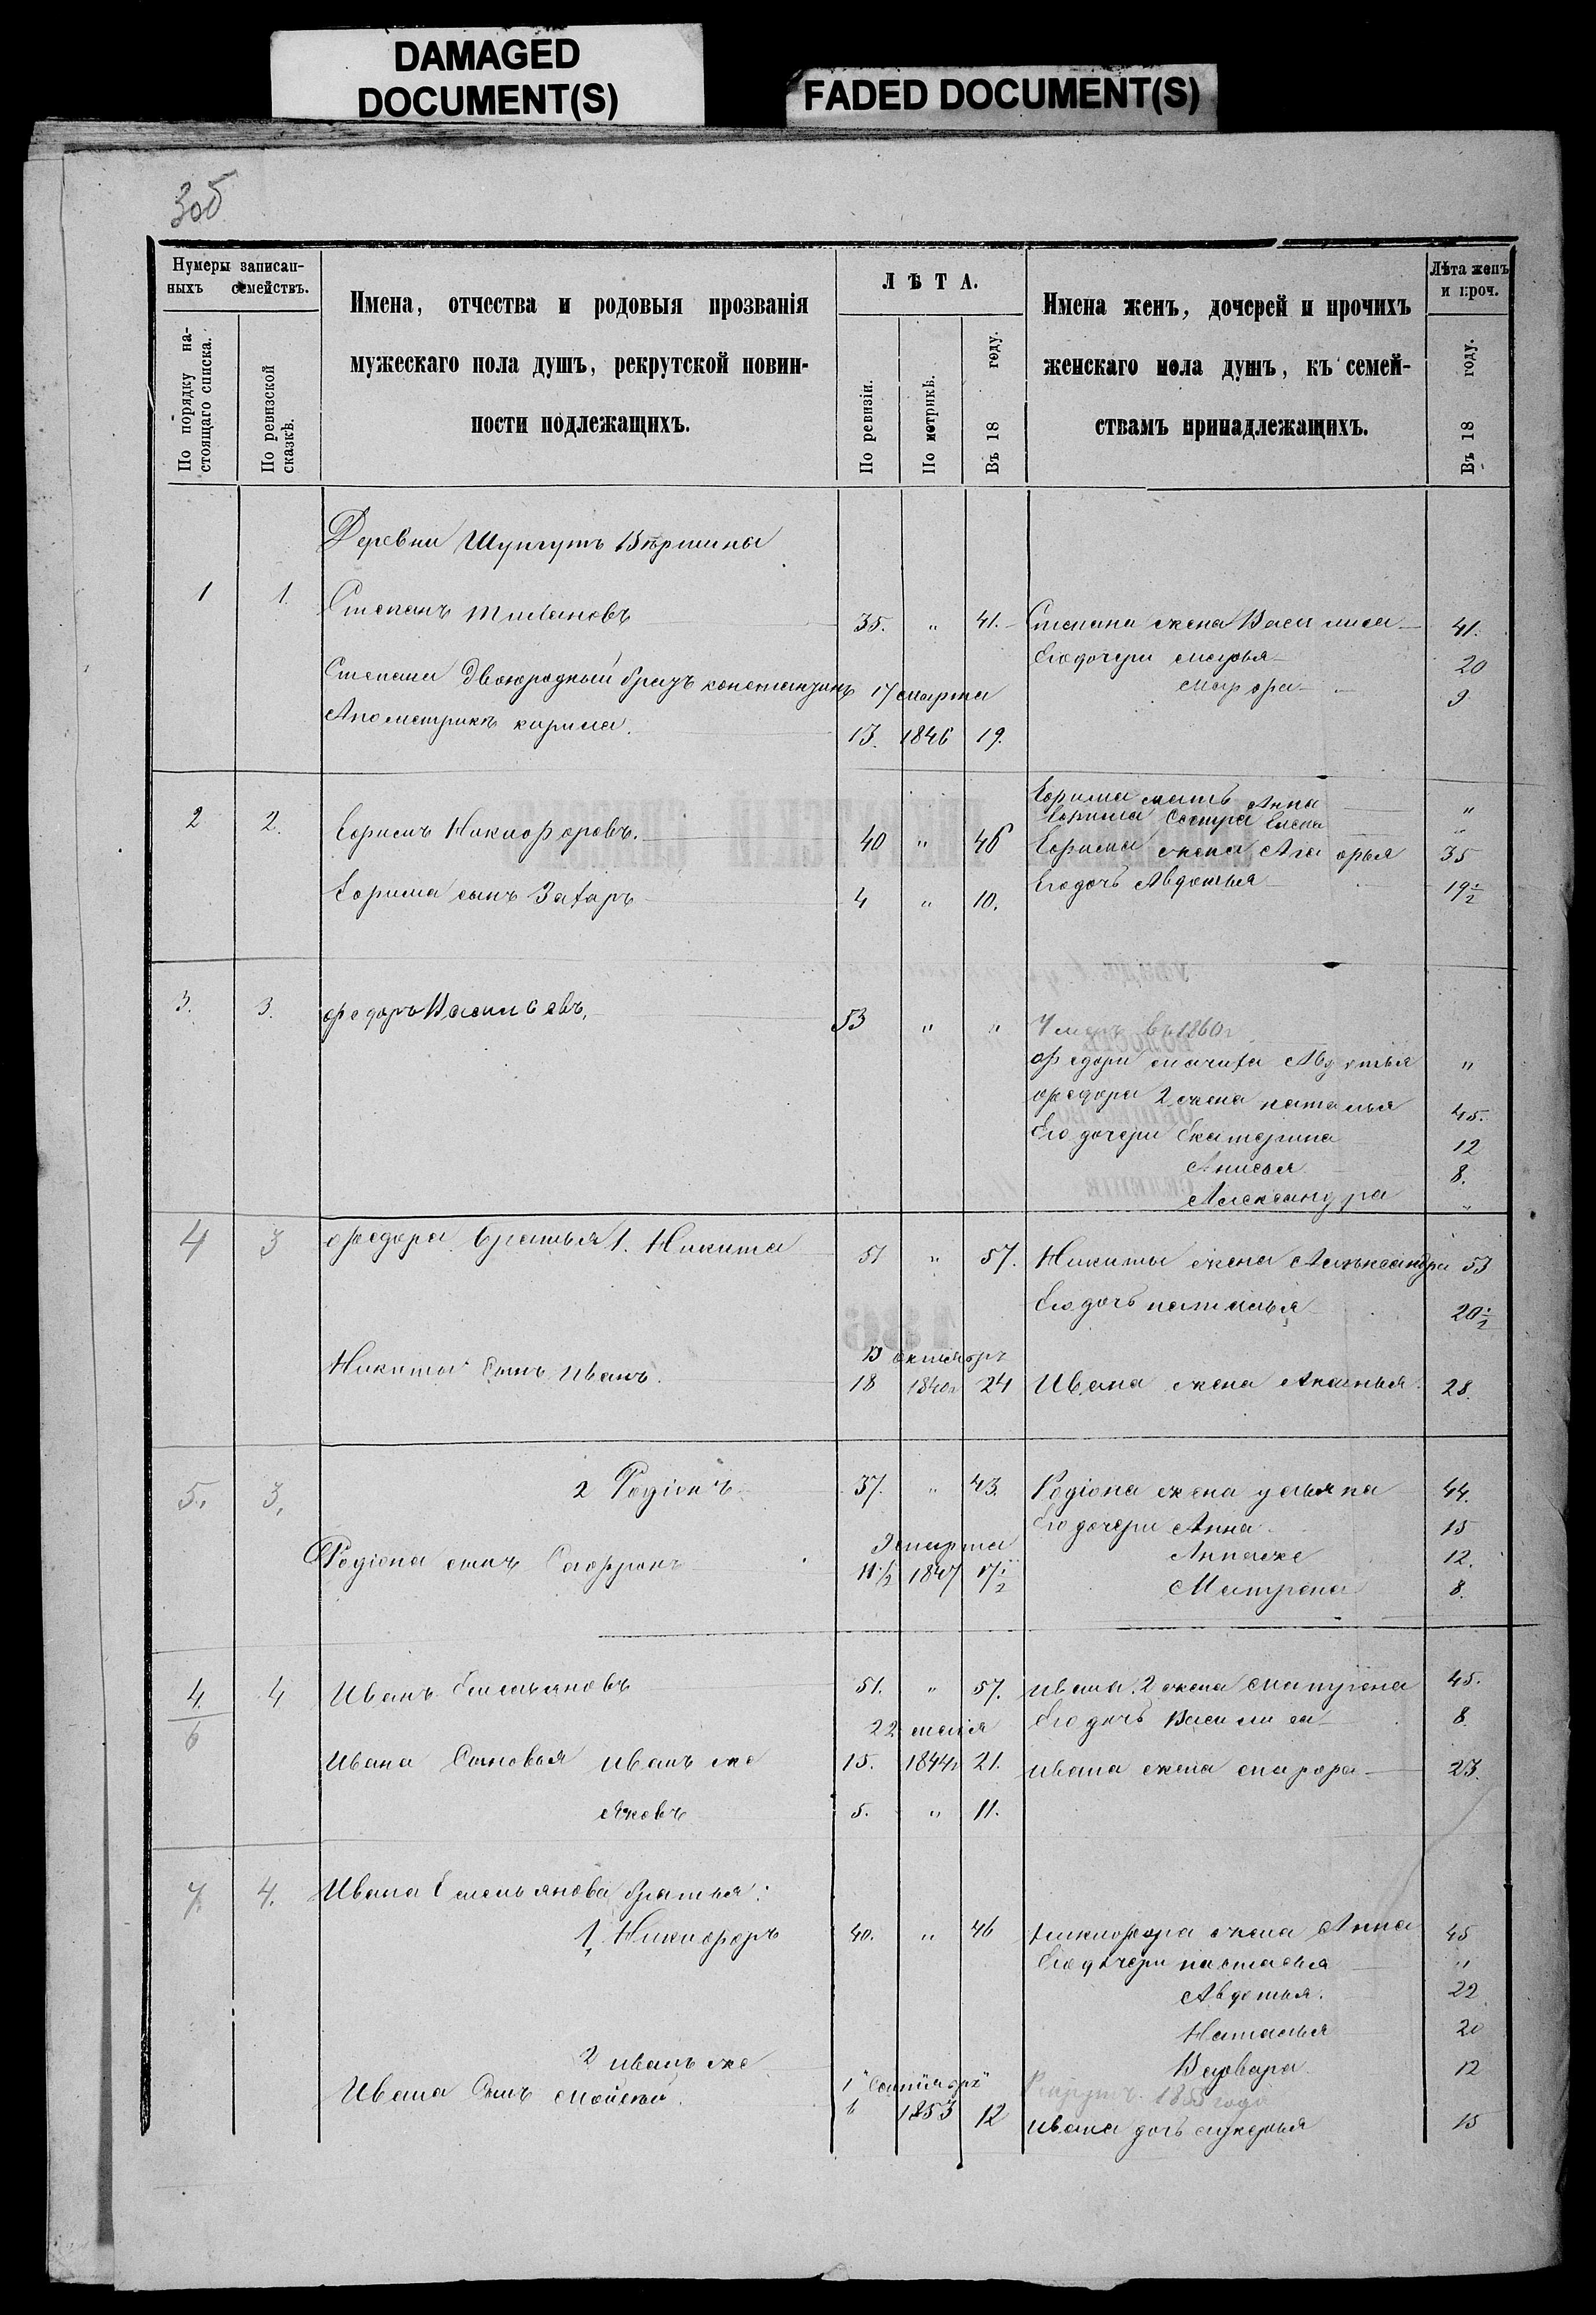 DAMAGED
DOCUMENT(S)
FADED DOCUMENT(S)
305
Нумеры записан-
ныхъ семействъ.
По порядку на-
стоящаго списка.
По ревизской
сказкѣ.
Имена, отчества и родовыя прозванія
мужескаго пола душъ, рекрутской повин-
ности подлежащихъ.
ЛѢТА.
По ревизіи.
По метрикѣ.
Въ 18 году.
Имена женъ, дочерей и прочихъ
женскаго пола душъ, къ семей-
ствамъ принадлежащихъ.
Лѣта женъ
и проч.
Въ 18 году.
Деревни Шунгутъ Вѣршины
1 1. Степанъ 35. " 41. Степана жена Василиса 41.
Его дочери Марья 20
Марфа 9
Степана двоюродный братъ константинъ 17 марта
Апометрикѣ кирила. 13. 1846 19.
Ефима мать Анна "
Ефима Сестра Елена "
2 2. Ефимъ Никифоровъ. 40 " 46 Ефима жена Агафья 35
Его дочь Авдотья 19½
Ефима сынъ Захаръ 4 " 10.
3. 3. федоръ Васильевъ, 53 " " Умеръ въ 1860г
федора мачиха Авдотья "
федора 2 жена наталья 45.
Его дочери Екатерина 12
Анисья 8.
Александра "
4 3 федора братья 1. Никита 51 " 57. Никиты жена Алѣксандра 53
Его дочь наталья 20½
Никиты сынъ Иванъ. 18 октября 1840г 24 Ивана жена Аксинья 28.
5. 3. 2 Родіонъ 37. " 43. Родіона жена ульяна 44.
Его дочери Анна 15
Родіона сынъ Софронъ 11½ марта 1847 17½ Анна же 12.
Матрена 8.
4 4 Иванъ Емельяновъ 51. " 57. ивана 2 жена Матрена 45.
6 22 маія Его дочь Василиса 8.
Ивана Сыновья иванъ же 15. 1844г 21. ивана жена марфа 23.
Яковъ 5. " 11.
7. 4. Ивана Емельянова братья:
1, Никифоръ 40. " 46 никифора жена Анна 45
Его дочери настасья "
Авдотья. 22
Наталья 20
Варвара 12
2 иванъ же Рекрутъ 1855 года
Ивана Сынъ Мойсей. 6 1 Сентября 1853 12 ивана дочь лукерья 15